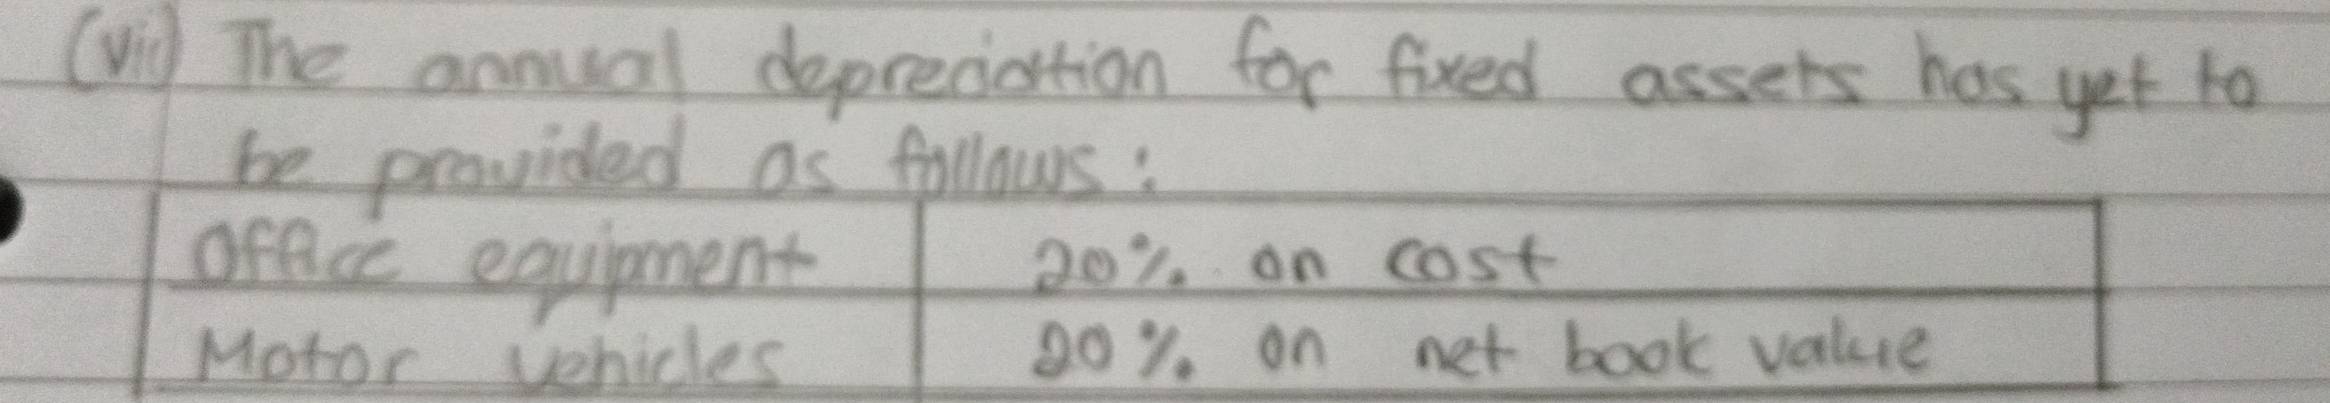 (vii) The annual depreciation for fixed assets has yet to
be provided as follows:
Office equipment 20% on cost
Motor vehicles 20% on net book value